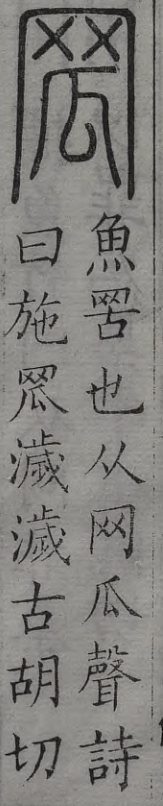 罛
魚罟也从网瓜聲詩
曰施罛濊濊古胡切